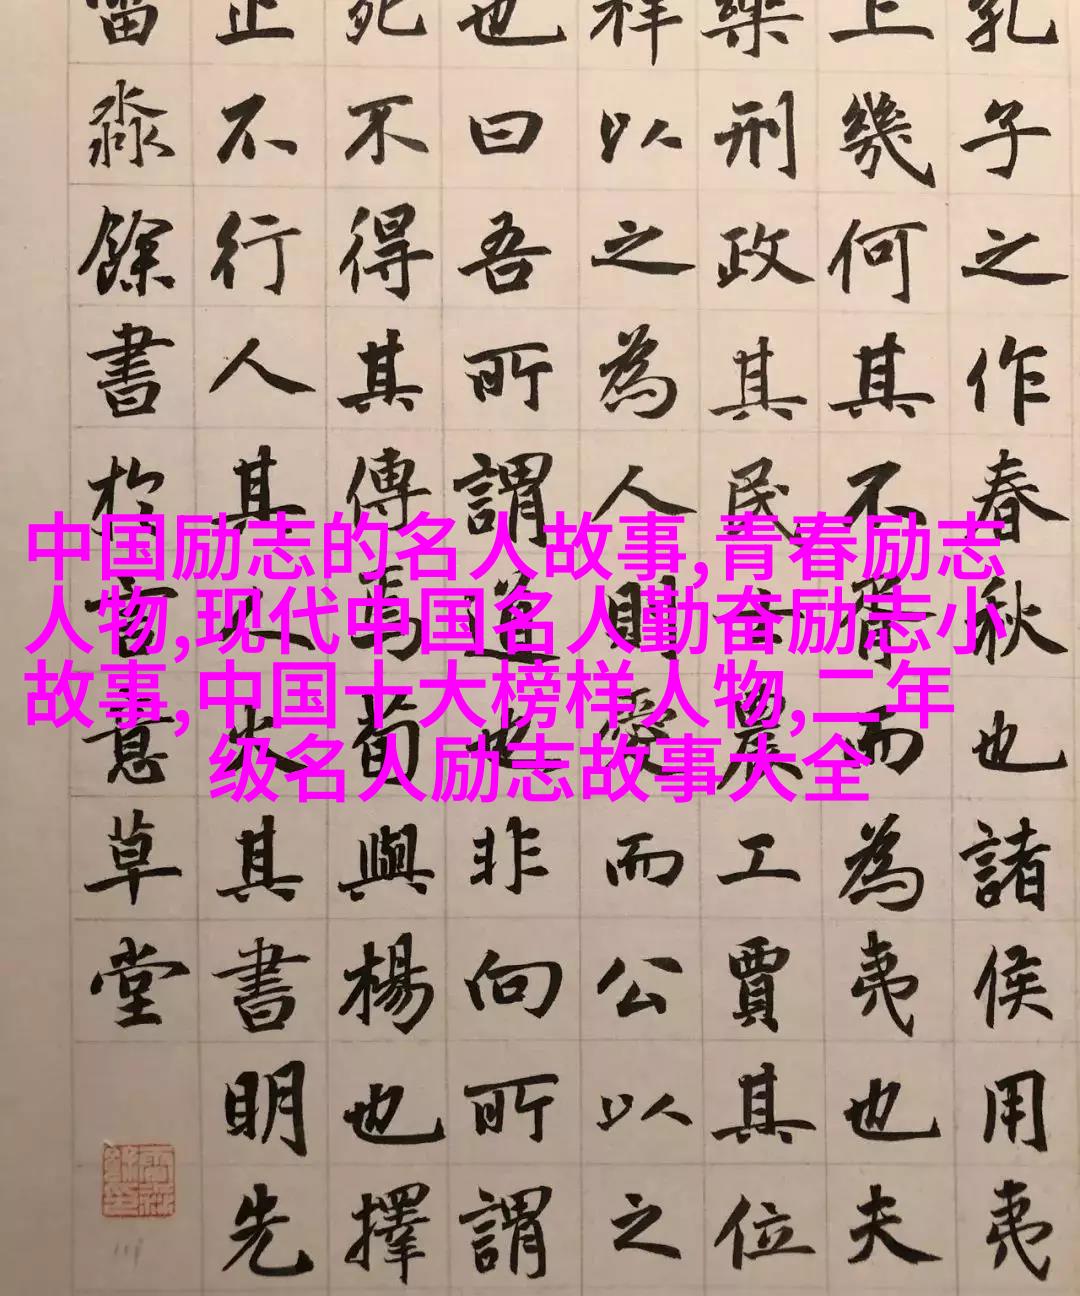 孔子之作春秋也諸侯用夷
上幾何其不胥而為夷也夫
樂刑政其民士農工賈其位
祥以之為人則愛而公以之
也曰吾所謂道也非向所謂
死不得其傳焉荀與楊也擇
止不行人其人火其書明先
淼餘書於古意草堂
中国励志的名人故事,青春励志
人物,现代中国名人勤奋励志小
故事,中国十大榜样人物,二年
级名人励志故事大全